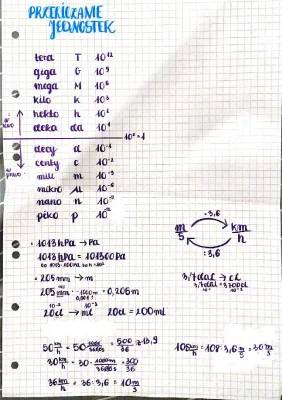 PRZELICZANIE
JEDNOSTEK
tera T 10¹²
giga G 10⁹
mega M 10⁶
kilo k 10³
hekto h 10²
deka da 10¹
10⁰=1
decy d 10⁻¹
centy c 10⁻²
mili m 10⁻³
mikro μ 10⁻⁶
nano n 10⁻⁹
piko p 10⁻¹²
·3,6
m/s km/h
:3,6
• 1013hPa → Pa
1013hPa = 101300Pa
• 205mm → m
= 0,205m
20cl → ml 20cl = 200ml
3,7dal → cl
3,7dal = 3700cl
50 km/h = 50 · 1000/3600s = 500/36 ≈ 13,9
30 km/h = 30 · 1000m/3600s = 300/36
36 km/h = 36 : 3,6 = 10 m/s
108 km/h = 108 : 3,6 m/s = 30 m/s